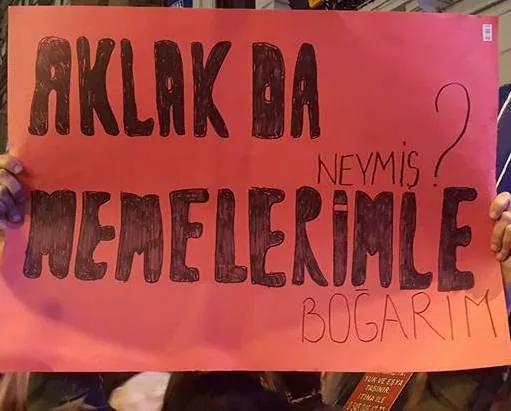 AKLAK DA
NEYMİŞ?
MEMELERİMLE
BOĞARIM
YÜK VE EŞYA
TAŞINIR